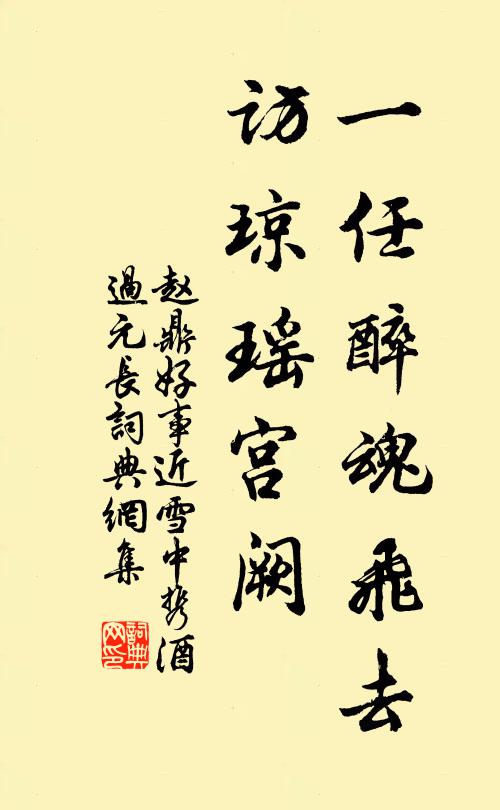 一任醉魂飛去
访琼瑶宫阙
赵鼎好事近雪中携酒
過元長詞典網集
詞典网印